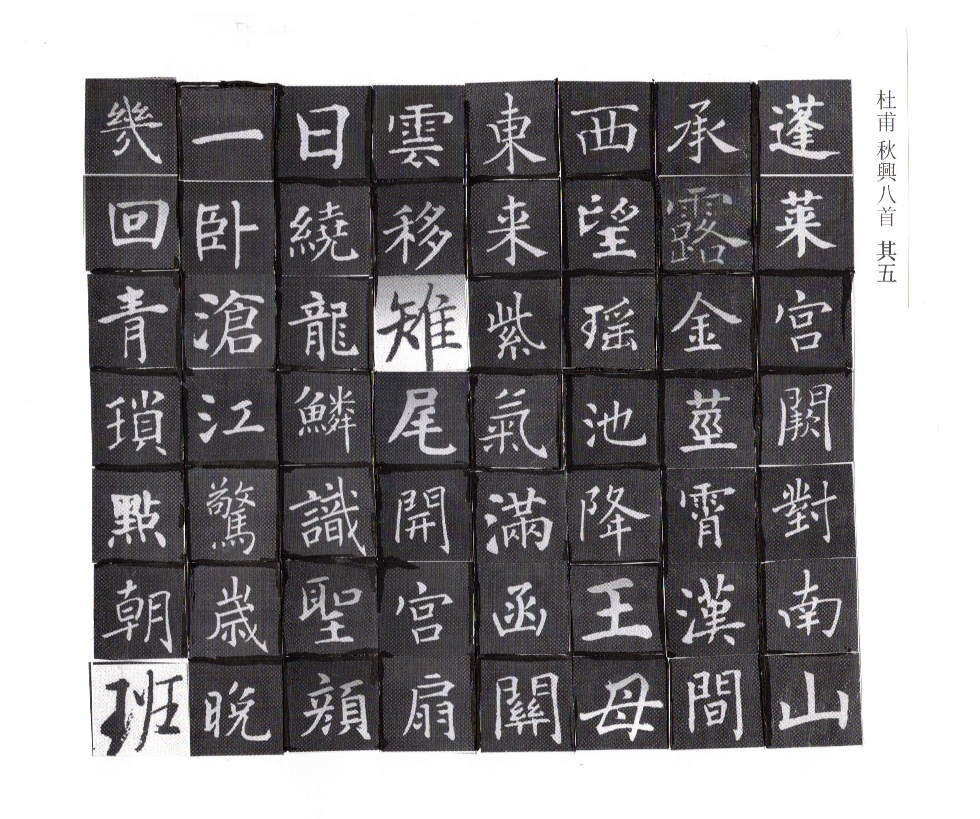 杜甫 秋興八首 其五
蓬莱宮闕對南山
承露金莖霄漢間
西望瑶池降王母
東来紫氣滿函關
雲移雉尾開宮扇
日繞龍鱗識聖顏
一卧滄江驚歲晚
幾回青瑣點朝班